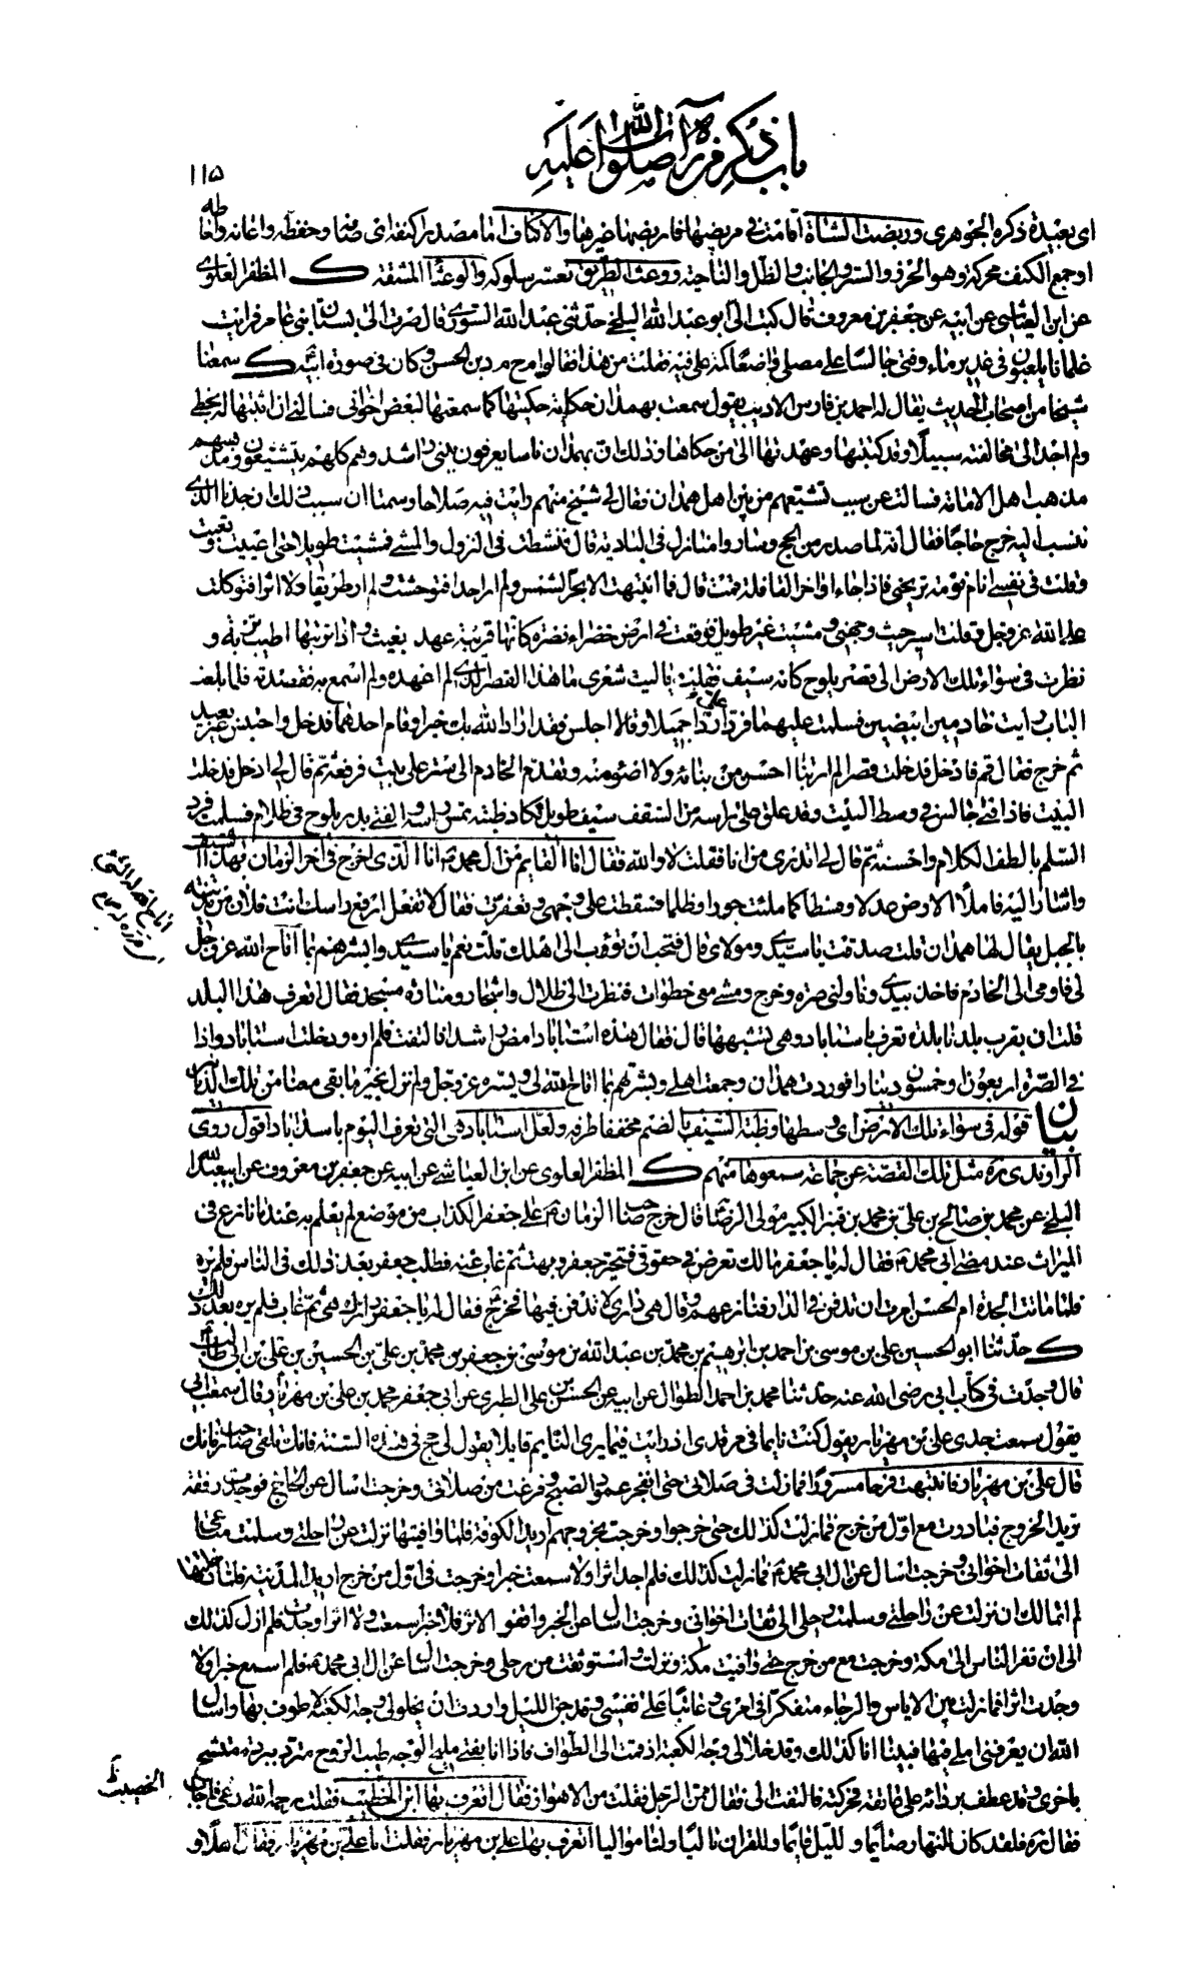 باب ذكر من رآه صلوات الله عليه
١١٥
اى بعيدة ذكره الجوهرى وربضت الشاة اقامت فى مربضها فاربضها غيرها والاكناف اما مصدر اكنفه اى صانه وحفظه واعانه واحاطه
او جمع الكنف محركة وهو الحرز والستر والجانب والظل والناحية ووعث الطريق تعسر سلوكه والوعثاء المشقة ك المظفر العلوى
عن ابن العياشى عن ابيه عن جعفر بن معروف قال كتب الى ابو عبد الله البلخى حدثنى عبد الله السورى قال صرت الى بستان بنى عامر فرايت
غلمانا يلعبون فى غدير ماء وفتى جالسا على مصلى واضعا كمه على فيه فقلت من هذا فقالوا م ح م د بن الحسن وكان فى صورة ابيه ك سمعنا
شيخا من اصحاب الحديث يقال له احمد بن فارس الاديب يقول سمعت بهمدان حكاية حكيتها كما سمعتها لبعض اخوانى فسالنى ان اثبتها له بخطى
ولم اجد الى مخالفته سبيلا وقد كتبتها وعهدتها الى من حكاها وذلك ان بهمدان ناسا يعرفون ببنى راشد وهم كلهم يتشيعون ومذهبهم
مذهب اهل الامامة فسالت عن سبب تشيعهم من بين اهل همدان فقال لى شيخ منهم رايت فيه صلاحا وسمتا ان سبب ذلك ان جدنا الذى
ننسب اليه خرج حاجا فقال انه لما صدر من الحج وساروا منازل فى البادية قال فنشطت فى النزول والمشى فمشيت طويلا حتى اعييت وتعبت
وقلت فى نفسى انام نومة تريحنى فاذا جاء اواخر القافلة قمت قال فما انتبهت الا بحر الشمس ولم ار احدا فتوحشت ولم ار طريقا ولا اثرا فتوكلت
على الله عز وجل وقلت اسير حيث وجهنى ومشيت غير طويل فوقعت فى ارض خضراء نضرة كانها قريبة عهد بغيث واذا تربتها اطيب تربة و
نظرت فى سواء تلك الارض الى قصر يلوح كانه سيف فقلت يا ليت شعرى ما هذا القصر الذى لم اعهده ولم اسمع به فقصدته فلما بلغت
الباب رايت خادمين ابيضين فسلمت عليهما فردا على ردا جميلا وقالا اجلس فقد اراد الله بك خيرا وقام احدهما فدخل واحتبس غير بعيد
ثم خرج فقال قم فادخل فدخلت قصرا لم ار بناء احسن من بنائه ولا اضوء منه وتقدم الخادم الى ستر على بيت فرفعه ثم قال لى ادخل فدخلت
البيت فاذا فتى جالس فى وسط البيت وقد علق على راسه من السقف سيف طويل تكاد ظبته تمس راسه والفتى بدر يلوح فى ظلام فسلمت فرد
السلم بالطف الكلام واحسنه ثم قال لى اتدرى من انا فقلت لا والله فقال انا القايم من ال محمد ص انا الذى اخرج فى اخر الزمان بهذا السيف
واشار اليه فاملا الارض عدلا وقسطا كما ملئت جورا وظلما فسقطت على وجهى وتعفرت فقال لا تفعل ارفع راسك انت فلان من مدينة
بالجبل يقال لها همدان قلت صدقت يا سيدى ومولاى قال فتحب ان تؤوب الى اهلك قلت نعم يا سيدى وابشرهم بما اتاح الله عز وجل
لى فاومى الى الخادم فاخذ بيدى وناولنى صرة وخرج ومشى معى خطوات فنظرت الى ظلال واشجار ومنارة مسجد فقال اتعرف هذا البلد
قلت ان بقرب بلدنا بلدة تعرف باستاباد وهى تشبهها قال فقال هذه استاباد امض راشدا فالتفت فلم اره ودخلت استاباد واذا
فى الصرة اربعون او خمسون دينارا فوردت همدان وجمعت اهلى وبشرتهم بما اتاح الله لى ويسره عز وجل ولم نزل بخير ما بقى معنا من تلك الدنانير
بيان قوله فى سواء تلك الارض اى وسطها وظبة السيف بالضم مخففا طرفه ولعل استاباد هى التى تعرف اليوم باسداباد اقول روى
الراوندى ره مثل تلك القصة عن جماعة سمعوها منهم ك المظفر العلوى عن ابن العياشى عن ابيه عن جعفر بن معروف عن ابى عبد الله
البلخى عن محمد بن صالح بن على بن محمد بن قنبر الكبير مولى الرضا ع قال خرج صاحب الزمان ع على جعفر الكذاب من موضع لم يعلم به عند ما نازع فى
الميراث عند مضى ابى محمد ع فقال له يا جعفر مالك تعرض فى حقوقى فتحير جعفر وبهت ثم غاب عنه فطلبه جعفر بعد ذلك فى الناس فلم يره
فلما ماتت الجدة ام الحسن امرت ان تدفن فى الدار فنازعهم وقال هى دارى لا تدفن فيها فخرج ع فقال له يا جعفر دارك هى ثم غاب فلم يره بعد ذلك
ك حدثنا ابو الحسين على بن موسى بن احمد بن ابرهيم بن محمد بن عبد الله بن موسى بن جعفر بن محمد بن على بن الحسين بن على بن ابى طالب
قال وجدت فى كتاب ابى رضى الله عنه حدثنا محمد بن احمد الطوال عن ابيه عن الحسن بن على الطبرى عن ابى جعفر محمد بن على بن مهزيار قال سمعت ابى
يقول سمعت جدى على بن مهزيار يقول كنت نايما فى مرقدى اذ رايت فيما يرى النايم قايلا يقول لى حج فى هذه السنة فانك تلقى صاحب زمانك
قال على بن مهزيار فانتبهت فرحا مسرورا فما زلت فى صلاتى حتى انفجر عمود الصبح وفرغت من صلاتى وخرجت اسال عن الحاج فوجدت رفقة
تريد الخروج فبادرت مع اول من خرج فما زلت كذلك حتى خرجوا وخرجت بخروجهم اريد الكوفة فلما وافيتها نزلت عن راحلتى وسلمت متاعى
الى ثقات اخوانى وخرجت اسال عن ال ابى محمد ع فما زلت كذلك فلم اجد اثرا ولا سمعت خبرا وخرجت فى اول من خرج اريد المدينة فلما دخلتها
لم اتمالك ان نزلت عن راحلتى وسلمت رحلى الى ثقات اخوانى وخرجت اسال عن الخبر واقفو الاثر فلا خبرا سمعت ولا اثرا وجدت فلم ازل كذلك
الى ان نفر الناس الى مكة وخرجت مع من خرج حتى وافيت مكة ونزلت واستوثقت من رحلى وخرجت اسال عن ال ابى محمد ع فلم اسمع خبرا ولا
وجدت اثرا فما زلت بين الاياس والرجاء متفكرا فى امرى وعاتبا على نفسى وقد جن الليل واردت ان يخلو لى وجه الكعبة لاطوف بها واسال
الله ان يعرفنى املى فيها فبينا انا كذلك وقد خلا لى وجه الكعبة اذ قمت الى الطواف فاذا انا بفتى مليح الوجه طيب الروح متردى ببردة متشح
باخرى وقد عطف بردائه على عاتقه فحركته فالتفت الى فقال ممن الرجل فقلت من الاهواز فقال اتعرف بها ابن الخطيب فقلت رحمه الله دعى فاجاب
فقال ره فلقد كان بالنهار صايما و لليل قايما وللقران تاليا ولنا مواليا اتعرف بها على بن مهزيار فقلت انا على بن مهزيار فقال اهلا و
الخصيب خ